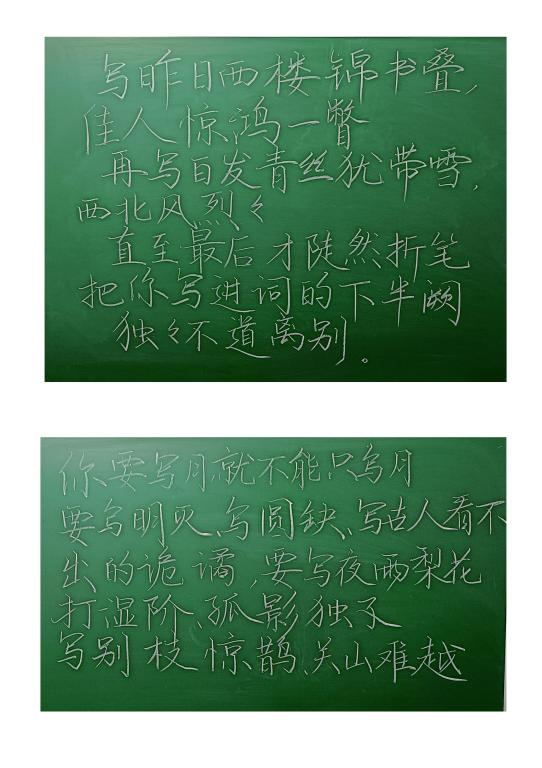 写昨日西楼锦书叠,
佳人惊鸿一瞥
再写百发青丝犹带雪,
西北风烈々
直至最后才陡然折笔
把你写进词的下半阙
独々不道离别。
你要写月就不能只写月
要写明灭、写圆缺、写古人看不
出的诡谲,要写夜雨梨花
打湿阶、孤影独孓
写别枝惊鹊、关山难越